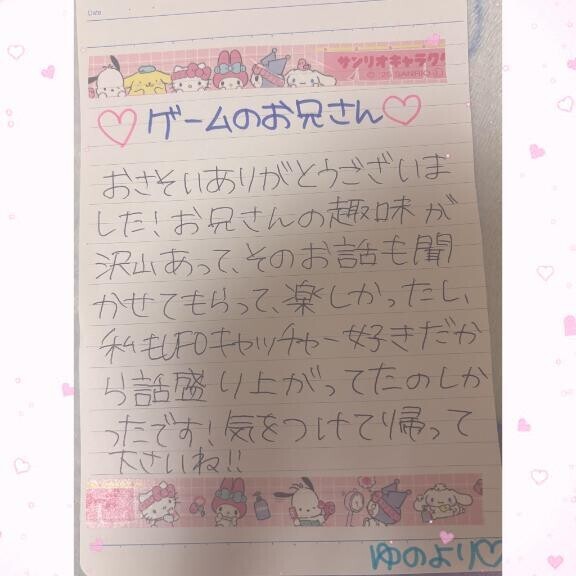 Date
サンリオキャラクタ
♡ゲームのお兄さん♡
おさそいありがとうございま
した！お兄さんの趣味が
沢山あって、そのお話も聞
かせてもらって、楽しかったし、
私もUFOキャッチャー好きだか
ら話盛り上がってたのしか
ったです！気をつけてり帰って
下さいね!!
ゆのより♡